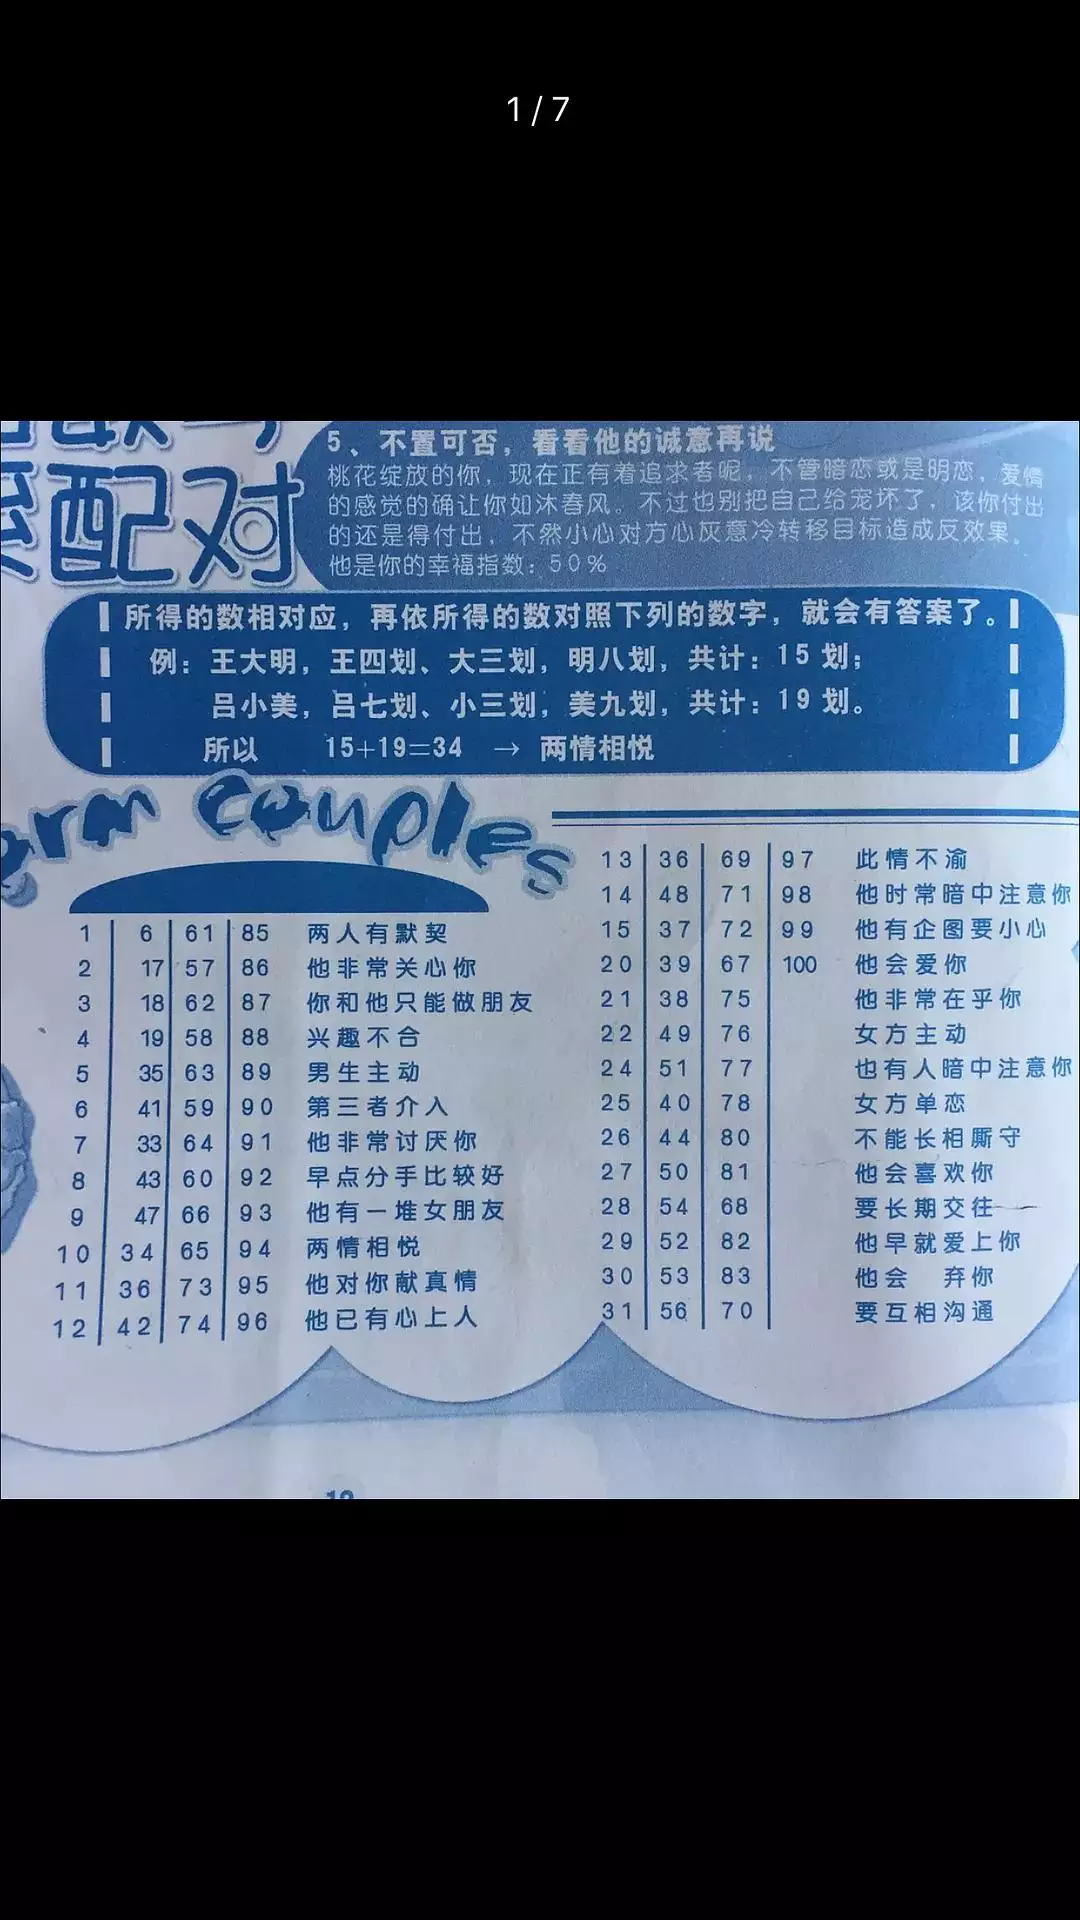 1 / 7
配对
5、不置可否，看看他的诚意再说
桃花绽放的你，现在正有着追求者呢，不管暗恋或是明恋，爱情
的感觉的确让你如沐春风。不过也别把自己给宠坏了，该你付出
的还是得付出，不然小心对方心灰意冷转移目标造成反效果。
他是你的幸福指数：50%
所得的数相对应，再依所得的数对照下列的数字，就会有答案了。
例：王大明，王四划、大三划，明八划，共计：15 划；
吕小美，吕七划、小三划，美九划，共计：19 划。
所以 15+19=34 → 两情相悦
couples
1 6 61 85 两人有默契
2 17 57 86 他非常关心你
3 18 62 87 你和他只能做朋友
4 19 58 88 兴趣不合
5 35 63 89 男生主动
6 41 59 90 第三者介入
7 33 64 91 他非常讨厌你
8 43 60 92 早点分手比较好
9 47 66 93 他有一堆女朋友
10 34 65 94 两情相悦
11 36 73 95 他对你献真情
12 42 74 96 他已有心上人
13 36 69 97 此情不渝
14 48 71 98 他时常暗中注意你
15 37 72 99 他有企图要小心
20 39 67 100 他会爱你
21 38 75 他非常在乎你
22 49 76 女方主动
24 51 77 也有人暗中注意你
25 40 78 女方单恋
26 44 80 不能长相厮守
27 50 81 他会喜欢你
28 54 68 要长期交往
29 52 82 他早就爱上你
30 53 83 他会 弃你
31 56 70 要互相沟通